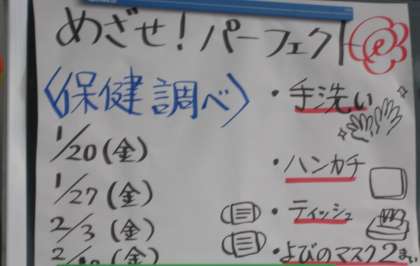 めざせ！パーフェクト
〈保健調べ〉
1/20(金)
1/27(金)
2/3(金)
(金)
・手洗い
・ハンカチ
・ティッシュ
・よびのマスク2まい